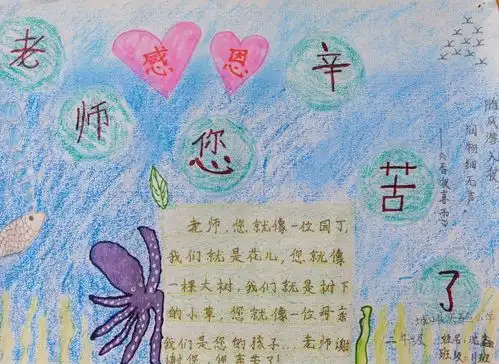 老师您辛苦了
感恩
随风潜入夜
润物细无声
——《春夜喜雨》
老师,您就像一位园丁,
我们就是花儿,您就像
一棵大树,我们就是树下
的小草,您就像一位母亲
我们是您的孩子...老师谢
谢您,您辛苦了!
二年级
姓名:
班级: